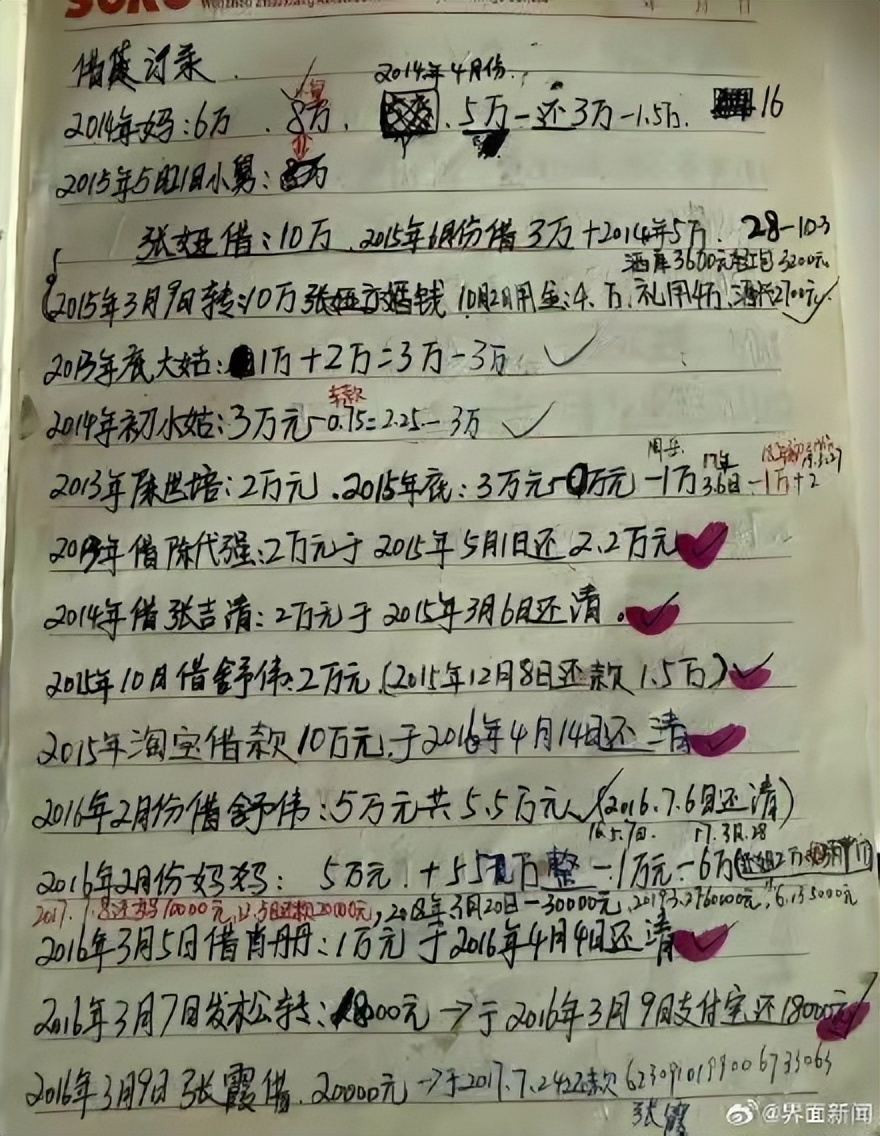 借莫记录
2014年4月份.
2014年妈:6万、8万、5万-还3万-1.5万. 16
2015年5月21日小舅:
张娅借:10万、2015年6月份借3万+2014年5万. 28-10-3
酒席3600元红包3200元
2015年3月9日转:10万张娅 婚钱 10月2日用金:4.万、礼用4万、2700元
2013年底大姑:1万+2万=3万-3万
车款
2014年初小姑:3万元-0.75=2.25-3万
17年
2013年陈世培:2万元、2015年底:3万元- 万元-1万 3.6日-1万+2
2013年借陈代强:2万元于2015年5月1日还2.2万元
2014年借张吉清:2万元于2015年3月6日还清。
2015年10月借舒伟:2万元.(2015年12月8日还款1.5万)
2015年淘宝借款10万元.于2016年4月14日还清
2016年2月份借舒伟:5万元共5.5万元、(2016.7.6日还清)
16.5.7日. 17.3月.28
2016年2月份妈妈: 5万元!+5 万整-1万元-6万
2017.1.8还妈10000元,12.5日还款20000元,2018年3月20日-30000元, 6.13 5000元
2016年3月5日借肖丹丹:1万元于2016年4月4日还清
2016年3月7日发松公转:18000元→于2016年3月9日支付宝还18000元
2016年3月9日张霞借.20000元→于2017.7.24还款
张霞
@界面新闻